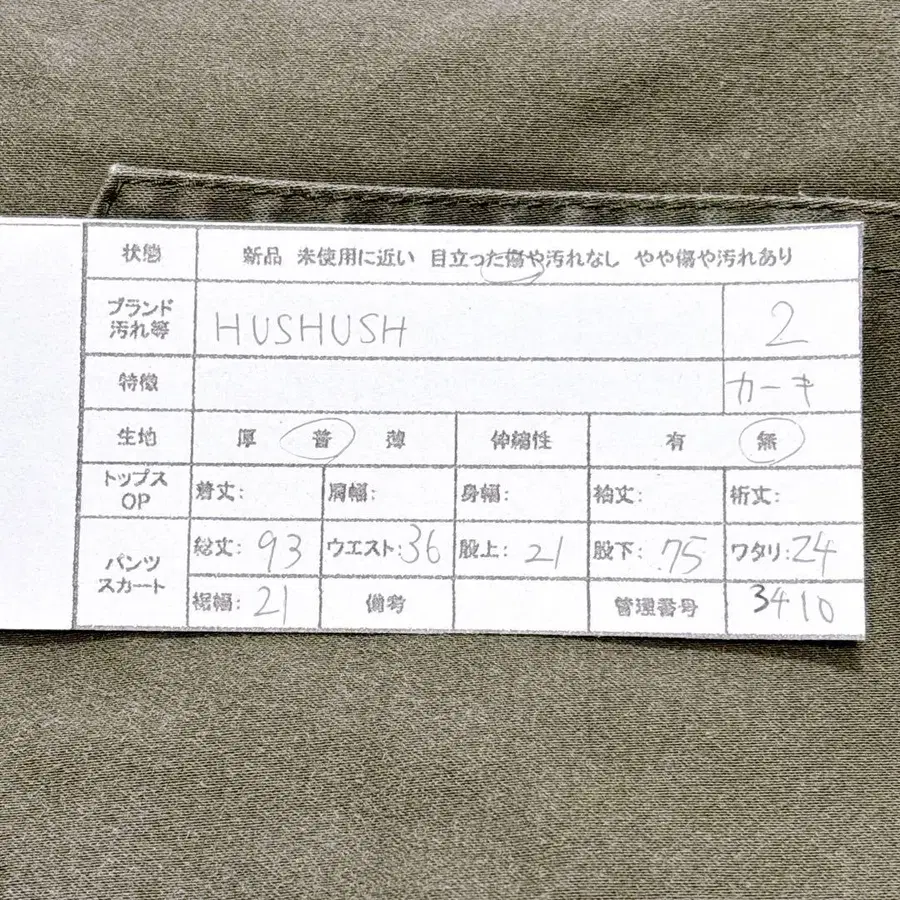 状態 新品 未使用に近い 目立った傷や汚れなし やや傷や汚れあり
ブランド
汚れ等 HUSHUSH 2
特徴 カーキ
生地 厚 普 薄 伸縮性 有 無
トップス
OP 着丈: 肩幅: 身幅: 袖丈: 裄丈:
パンツ
スカート 総丈:93 ウエスト:36 股上:21 股下:75 ワタリ:24
裾幅:21 備考 管理番号 3410